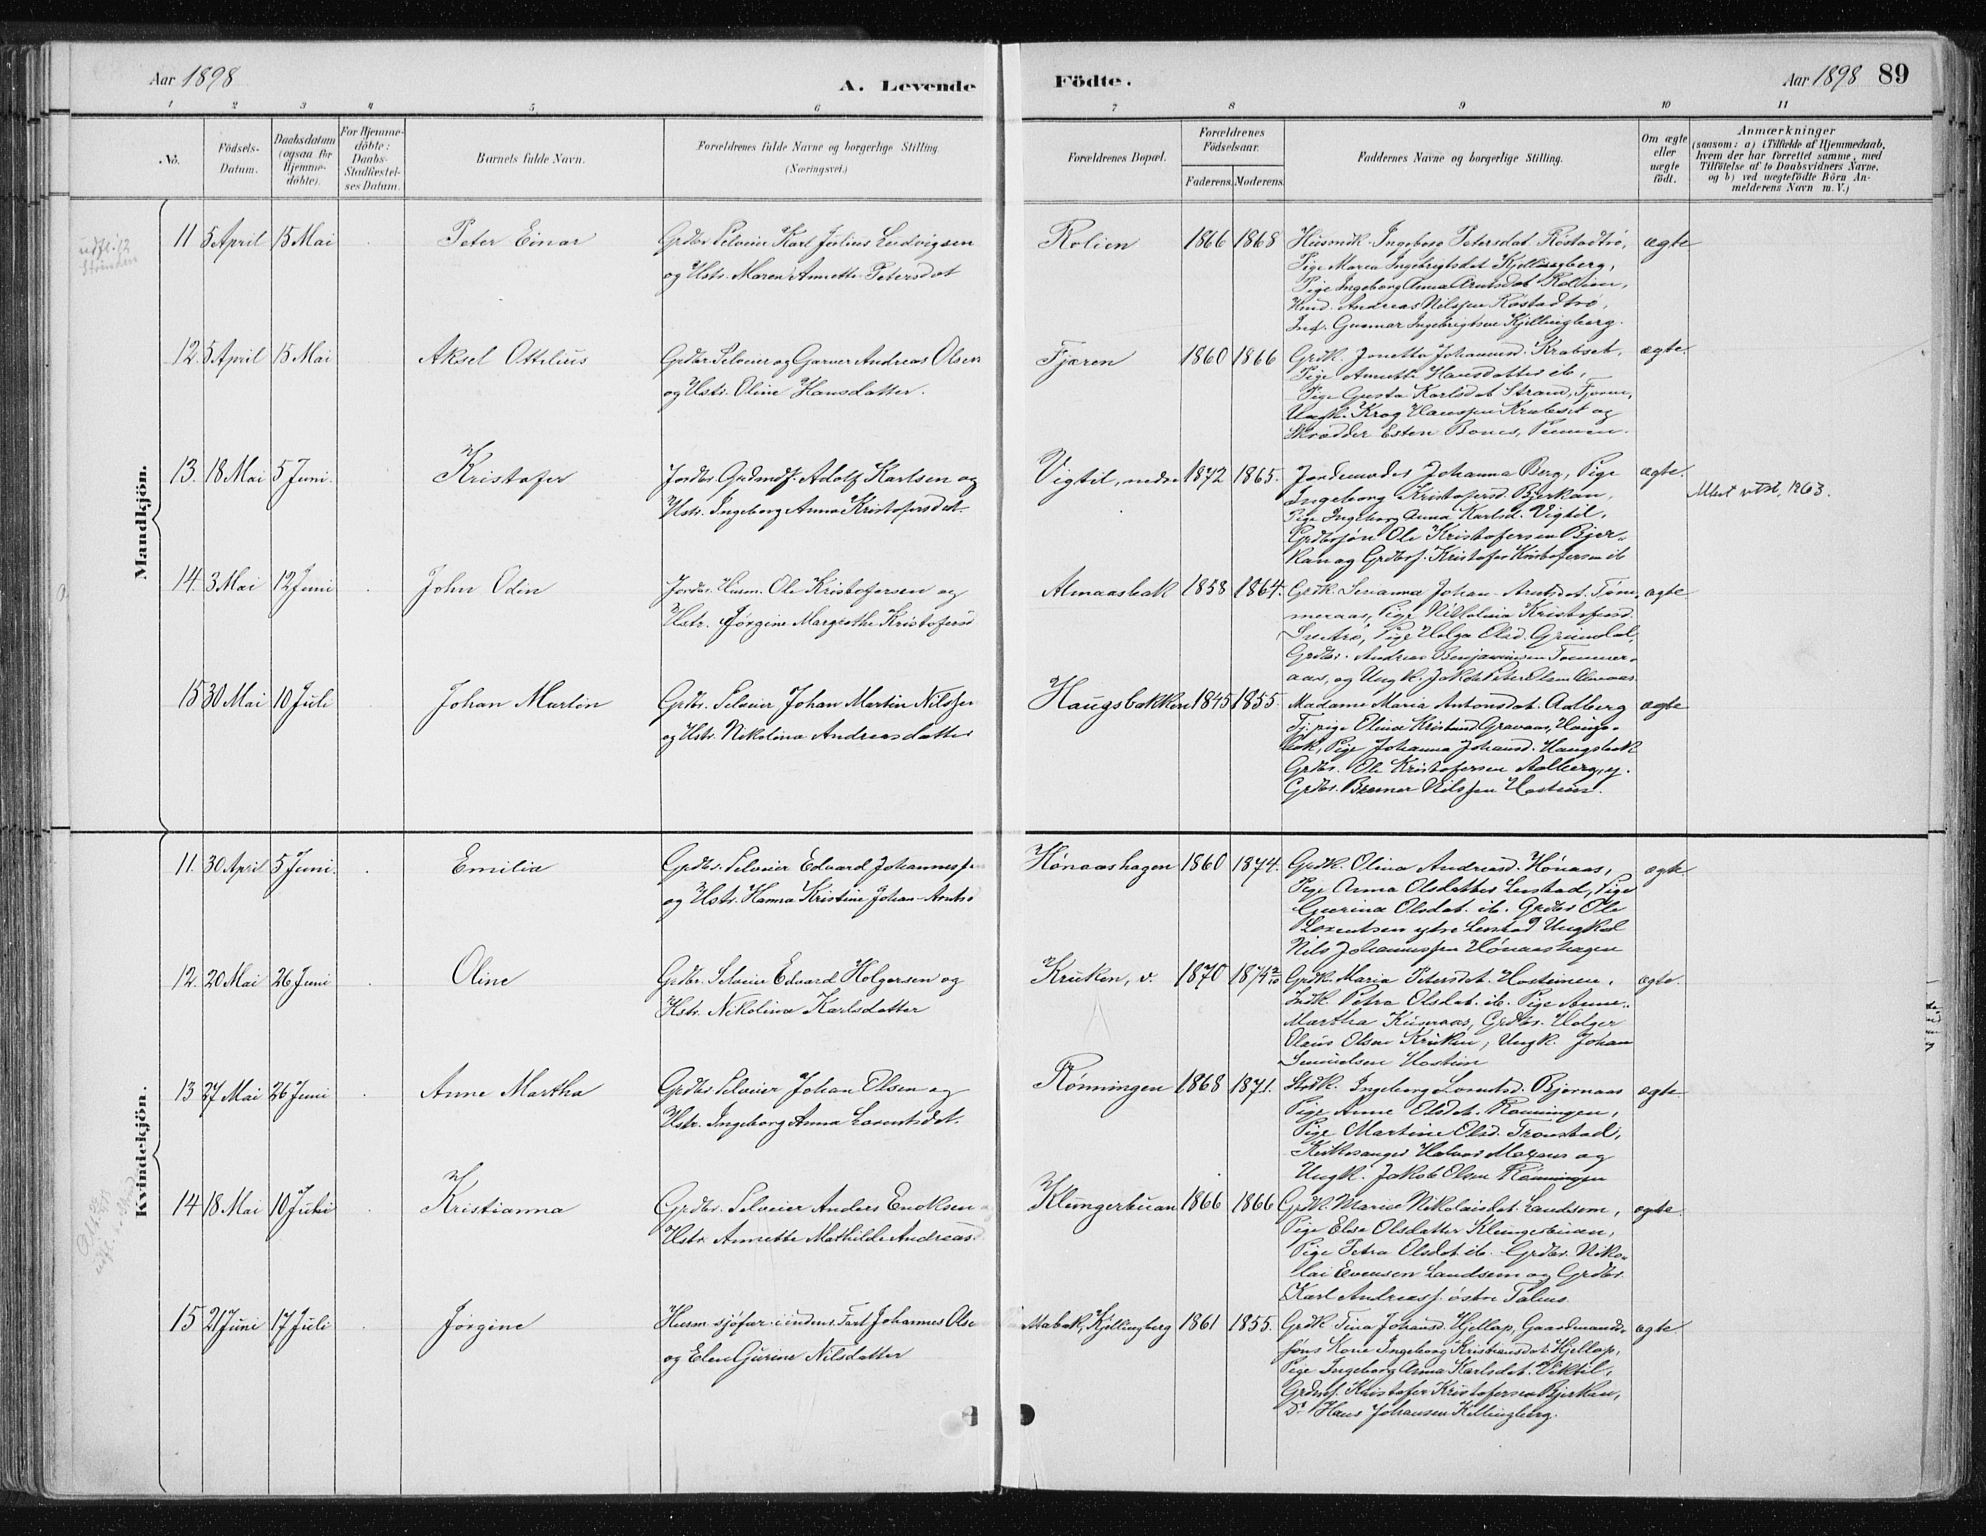 Aar 1898
A. Levende
Födte.
Aar 1898 89
1 2 3 4 5 6 7 8 9 10 11
No.
Födsels-
Datum.
Daabsdatum
(ogsaa for
Hjemme-
döbte).
For Hjemme-
döbte:
Daabs-
Stadfæstel-
ses Datum.
Barnets fulde Navn.
Forældrenes fulde Navne og borgerlige Stilling.
(Næringsvei.)
Forældrenes Bopæl.
Forældrenes
Födselsaar.
Faderens. Moderens.
Faddernes Navne og borgerlige Stilling.
Om ægte
eller
uægte
födt.
Anmærkninger
(saasom: a) i Tilfælde af Hjemmedaab,
hvem der har forrettet samme, med
Tilföielse af to Daabsvidners Navne,
og b) ved uægtefödte Börn An-
melderens Navn m. V.)
Mandkjön.
11 5 April 15 Mai Peter Einar
Grdbr. Selveier Karl Julius Ludvigsen
og Hstr. Maren Annette Petersdat
Rolien 1866 1868
Husmdk. Ingeborg Petersdat. Rostadtrø,
Pige Maria Ingebrigtsdat Kjellingberg,
Pige Ingeborg Anna Arntsdat Rolien,
Andreas Nilssen Rostadtrø,
Gunnar Ingebrigtsen Kjellingberg.
ægte
12. 5 April 15 Mai Aksel Ottilius
Grdbr. Selveier og Garver Andreas Olsen
og Hstr. Oline Hansdatter.
Fjæren 1860 1866
Grdk. Jonetta Johannesd. Krabset,
Pige Annette Hansdatter ib,
Pige Gusta Karlsdat Strand, Fjæren,
Ungk. Krog Hanssen Krabset og
Skrædder Esten Bones,
ægte.
13. 18 Mai 5 Juni. Kristofer
Jordbr. Grdmds. Adolf Karlsen og
Hstr. Ingeborg Anna Kristofersdat.
Vigtil, nedre 1872 1865.
Jordemoder Johanna Berg, Pige
Ingeborg Kristofersd. Bjerkan,
Pige Ingeborg Anna Karlsd. Vigtil,
Grdbrsøn Ole Kristofersen Bjer-
kan og Grdbrs. Kristofer Kristofersen ib
ægte.
Attest utst. 1963.
14. 3 Mai 12 Juni John Odin
Jordbr. Husm. Ole Kristofersen og
Hstr. Jørgine Margrethe Kristofersd
Almaasbak 1858 1864.
Grdk. Susanna Johan-Arntsdat. Tøm-
meraas, Pige Nikolina Kristofersd.
Pige Helga Olsd. Gründal,
Grdbr. Andreas Benjaminsen Tømmer-
aas, og Ungk. Jakob Peter Olsen Almaas
ægte
15 30 Mai 10 Juli Johan Martin
Grdbr. Selveier Johan Martin Nilssen
og Hstr. Nikolina Andreasdatter
Haugsbakken 1845 1855.
Madame Maria Antonsdat. Aalberg
Tj.pige Olina Kristiansd Gravaas, Haugs-
bak, Pige Johanna Johansd. Haugsbak
Grdbr. Ole Kristofersen Aalberg, y.
Grdbr. Bremer Nilssen Hostien.
ægte
Kvindekjön.
11. 30 April 5 Juni. Emilia
Grdbr. Selveier Edvard Johannes
og Hstr. Hanna Kristine Johan-Arnts
Hønaashagen 1860 1874.
Grdk. Olina Andreasd. Hønaas,
Pige Anna Olsdatter Lerstad, Pige
Gurina Olsdat. ib. Grdbr Ole
Lorentsen ytre Lerstad Ungkal
Nils Johannessen Hønaashagen
ægte
12. 20 Mai 26 Juni Oline
Grdbr. Selveier Edvard Holgersen og
Hstr. Nikolina Karlsdatter
Kruken, v. 1870 1874
Grdk. Maria Petersdat. Hostienen,
Petra Olsdat. ib. Pige Anne-
Martha Grdbr. Holger
Olaus Olsen Kruken, Ungk. Johan
Hostien
ægte.
13 27 Mai 26 Juni Anne Martha
Grdbr. Selveier Johan Olsen og
Hstr. Ingeborg Anna Lorentsdat.
Rønningen 1868 1871.
Ingeborg Lorentsd. Bjørnaas
Pige Anne Olsdat. Rønningen,
Pige Martine Olsd. Tronstad,
Kirkesanger Halvor Moxnes og
Ungk. Jakob Olsen Rønningen
ægte
14 18 Mai 10 Juli Kristianna
Grdbr. Selveier Anders Enoksen
Hstr. Annette Mathilde Andreas
Klungerbuan 1866 1866
Grdk. Marie Nikolaisdat. Landsem,
Pige Elise Olsdatter Klungerbuan,
Pige Petra Olsdat ib. Grdbr. Niko-
lai Evensen Landsem og Grdbr.
Karl Andreass. østre
ægte.
15 21 Juni 17 Juli Jørgine
Husm. sjöfar. i indenr. Fart Johannes Olse
og Elen Gurine Nilsdatter
Kjellingberg 1861 1855.
Grdk Tina Johansd. Hjellap, Gaardmands-
søns Kone Ingeborg Kristiansdat. Hjellap,
Pige Ingeborg Anna Karlsdat. Viktil,
Grdms. Kristofer Kristofersen Bjerkan,
Do. Hans Johansen Kellingberg.
ægte.